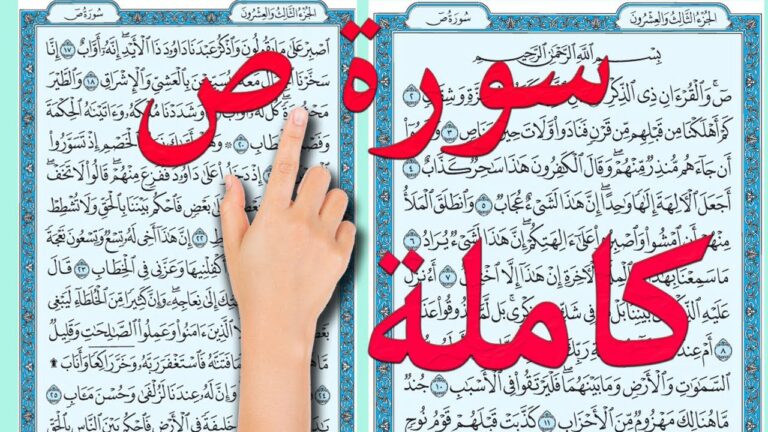 سورة ص كاملة
الجزء الثالث والعشرون سورة ص
بسم الله الرحمن الرحيم
ص والقرءان ذي الذكر
كم أهلكنا من قبلهم من قرن فنادوا ولات حين ٣
أن جاءهم منذر منهم وقال الكفرون هذا سحر كذاب ٤
أجعل الءالهة إلها وحدا إن هذا لشيء عجاب ٥ وانطلق الملأ
منهم أن امشوا على ءالهتكم إن هذا لشيء يراد ٦
ما سمعنا بهذا الءاخرة إن هذا إلا ٧ أءنزل
عليه الذكر من بيننا بل هم في من ذكري بل
٨ أم عند
السموت والأرض وما بينهما فليرتقوا في الأسبب ١٠ جند
ما هنالك مهزوم من الأحزاب ١١ كذبت قبلهم قوم نوح
الجزء الثالث والعشرون سورة ص
اصبر على ما يقولون واذكر عبدنا داود ذا الأيد إنه أواب ١٧ إنا
سخرنا معه يسبحن بالعشي والإشراق ١٨ والطير
كل له وشددنا ملكه وءاتينه الحكمة
٢٠ الخصم إذ تسوروا
إذ دخلوا على داود ففزع منهم قالوا لا تخف
على بعض فاحكم بيننا بالحق ولا تشطط
٢٢ إن هذا أخي له تسع وتسعون نعجة
أكفلنيها وعزني في الخطاب ٢٣ قال
إلى نعاجه وإن كثيرا من الخلطاء ليبغي
الذين ءامنوا وعملوا الصلحت وقليل
ما فتنه فاستغفر ربه وخر راكعا وأناب
وإن له عندنا لزلفى وحسن مءاب ٢٥
خليفة في الأرض فاحكم بين الناس بالحق